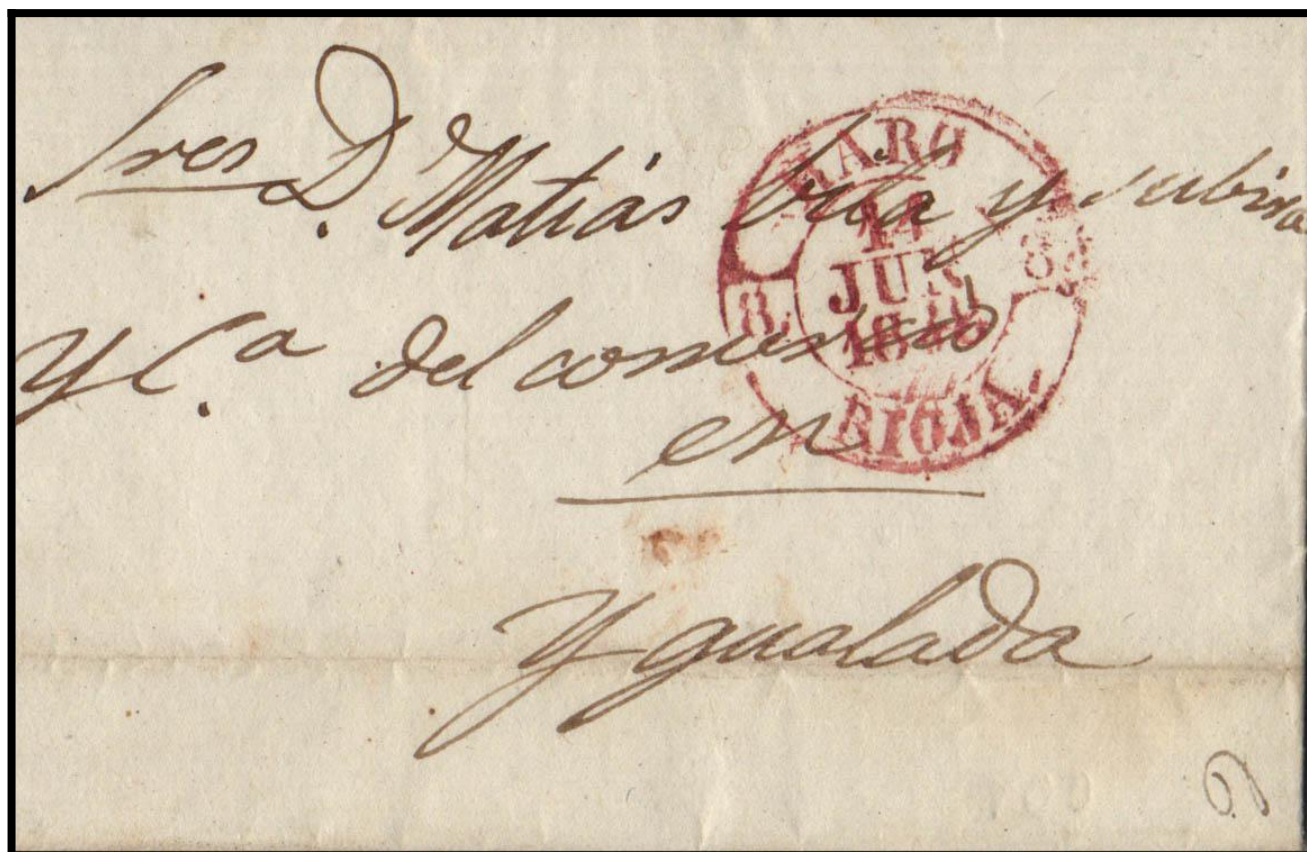 Sres D. Matías Vila y Subira
y C.a del comercio
en
Ygualada
HARO
14
JUN
RIOJA.
8.